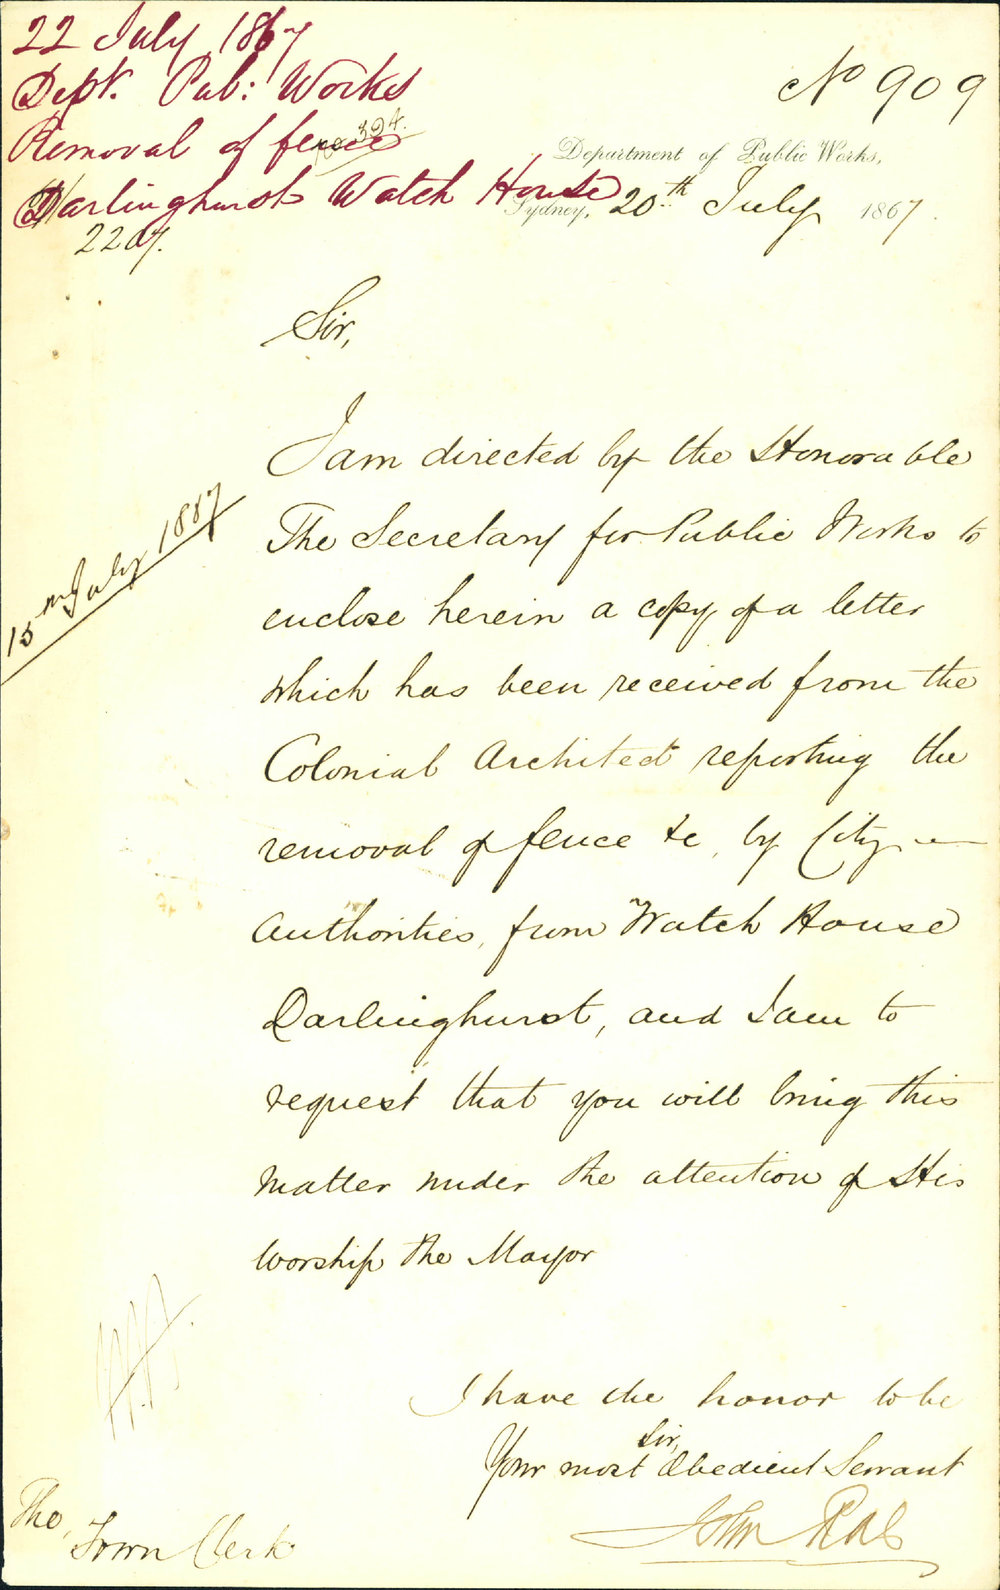 22 July 1867
Dept. Pub: Works
Removal of fence
Darlinghurst Watch House
No 394.
No 909
Department of Public Works,
Sydney, 20th July 1867.
Sir,
I am directed by the Honorable
The Secretary for Public Works to
enclose herein a copy of a letter
which has been received from the
15th July 1867
Colonial Architect reporting the
removal of fence &c, by City
Authorities, from Watch House
Darlinghurst, and I am to
request that you will bring this
matter under the attention of His
Worship the Mayor
I have the honor to be
Sir,
Your most Obedient Servant
John Rae
The,
Town Clerk